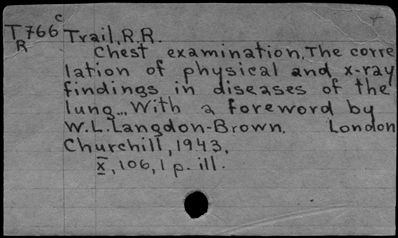 T766c Trail, R.R.
R
Chest examination. The corre
lation of physical and x-ray
findings in diseases of the
lung... With a foreword by
W.L. Langdon-Brown. London
Churchill, 1943.
x, 106, 1 p. ill.